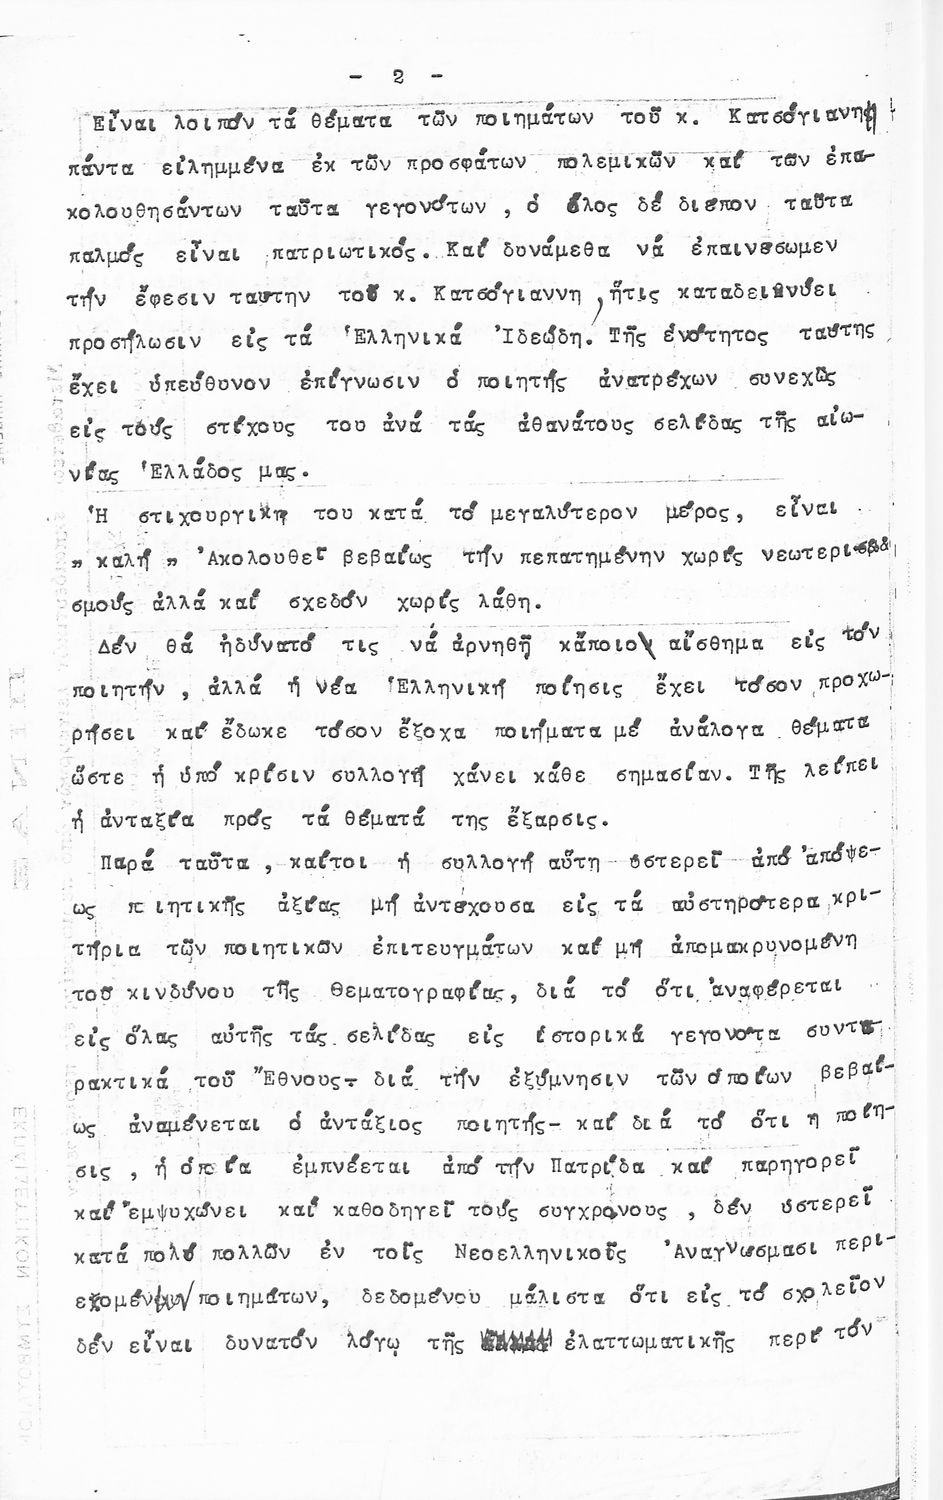 - 2 -
Εἶναι λοιπόν τά θέματα τῶν ποιημάτων τοῦ κ. Κατσόγιαννη
πάντα εἰλημμένα ἐκ τῶν προσφάτων πολεμικῶν καί των ἐπα-
κολουθησάντων ταῦτα γεγονότων , ὁ ὅλος δέ διέπον ταῦτα
παλμός εἶναι πατριωτικός. Καί δυνάμεθα νά ἐπαινέσωμεν
τήν ἔφεσιν ταύτην τοῦ κ. Κατσόγιαννη , ἥτις καταδεικνύει
προσήλωσιν εἰς τά Ἑλληνικά Ἰδεώδη. Τῆς ἑνότητος ταύτης
ἔχει ὑπεύθυνον ἐπίγνωσιν ὁ ποιητής ἀνατρέχων συνεχῶς
εἰς τούς στίχους του ἀνά τάς ἀθανάτους σελίδας τῆς αἰω-
νίας Ἑλλάδος μας.
Ἡ στιχουργική του κατά τό μεγαλύτερον μέρος, εἶναι
" καλή " Ἀκολουθεῖ βεβαίως τήν πεπατημένην χωρίς νεωτερι-
σμούς ἀλλά καί σχεδόν χωρίς λάθη.
Δέν θά ἠδύνατό τις νά ἀρνηθῇ κἄποιο αἴσθημα εἰς τόν
ποιητήν , ἀλλά ἡ νέα Ἑλληνική ποίησις ἔχει τόσον προχω-
ρήσει καί ἔδωκε τόσον ἔξοχα ποιήματα μέ ἀνάλογα θέματα
ὥστε ἡ ὑπό κρίσιν συλλογή χάνει κάθε σημασίαν. Τῆς λείπει
ἡ ἀνταξία πρός τά θέματά της ἔξαρσις.
Παρά ταῦτα , καίτοι ἡ συλλογή αὕτη ὑστερεῖ ἀπό ἀπόψε-
ως ποιητικῆς ἀξίας μή ἀντέχουσα εἰς τά αὐστηρότερα κρι-
τήρια τῶν ποιητικῶν ἐπιτευγμάτων καί μή ἀπομακρυνομένη
τοῦ κινδύνου τῆς θεματογραφίας, διά τό ὅτι ἀναφέρεται
εἰς ὅλας αὐτῆς τάς σελίδας εἰς ἱστορικά γεγονότα συντα-
ρακτικά τοῦ Ἔθνους- διά τήν ἐξύμνησιν τῶν ὁποίων βεβαί-
ως ἀναμένεται ὁ ἀντάξιος ποιητής- καί διά τό ὅτι η ποίη-
σις , ἡ ὁποία ἐμπνέεται ἀπό τήν Πατρίδα καί παρηγορεῖ
καί ἐμψυχώνει καί καθοδηγεῖ τούς συγχρόνους , δέν ὑστερεῖ
κατά πολύ πολλῶν ἐν τοῖς Νεοελληνικοῖς Ἀναγνώσμασι περι-
εχομένων ποιημάτων, δεδομένου μάλιστα ὅτι εἰς τό σχολεῖον
δέν εἶναι δυνατόν λόγῳ τῆς ἐλαττωματικῆς περί τόν